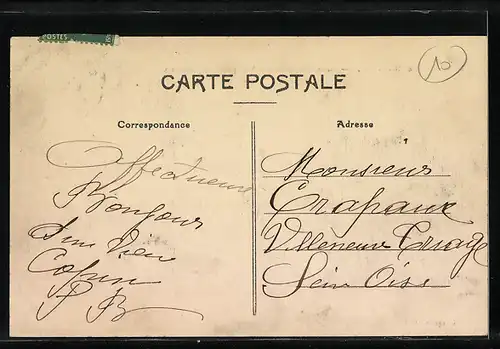 POSTES
10
CARTE POSTALE
Correspondance
Adresse
Affectueux
Bonjour
d'un vieux
Copain
P B
Monsieur
Crapaux
Villeneuve Triage
Seine Oise